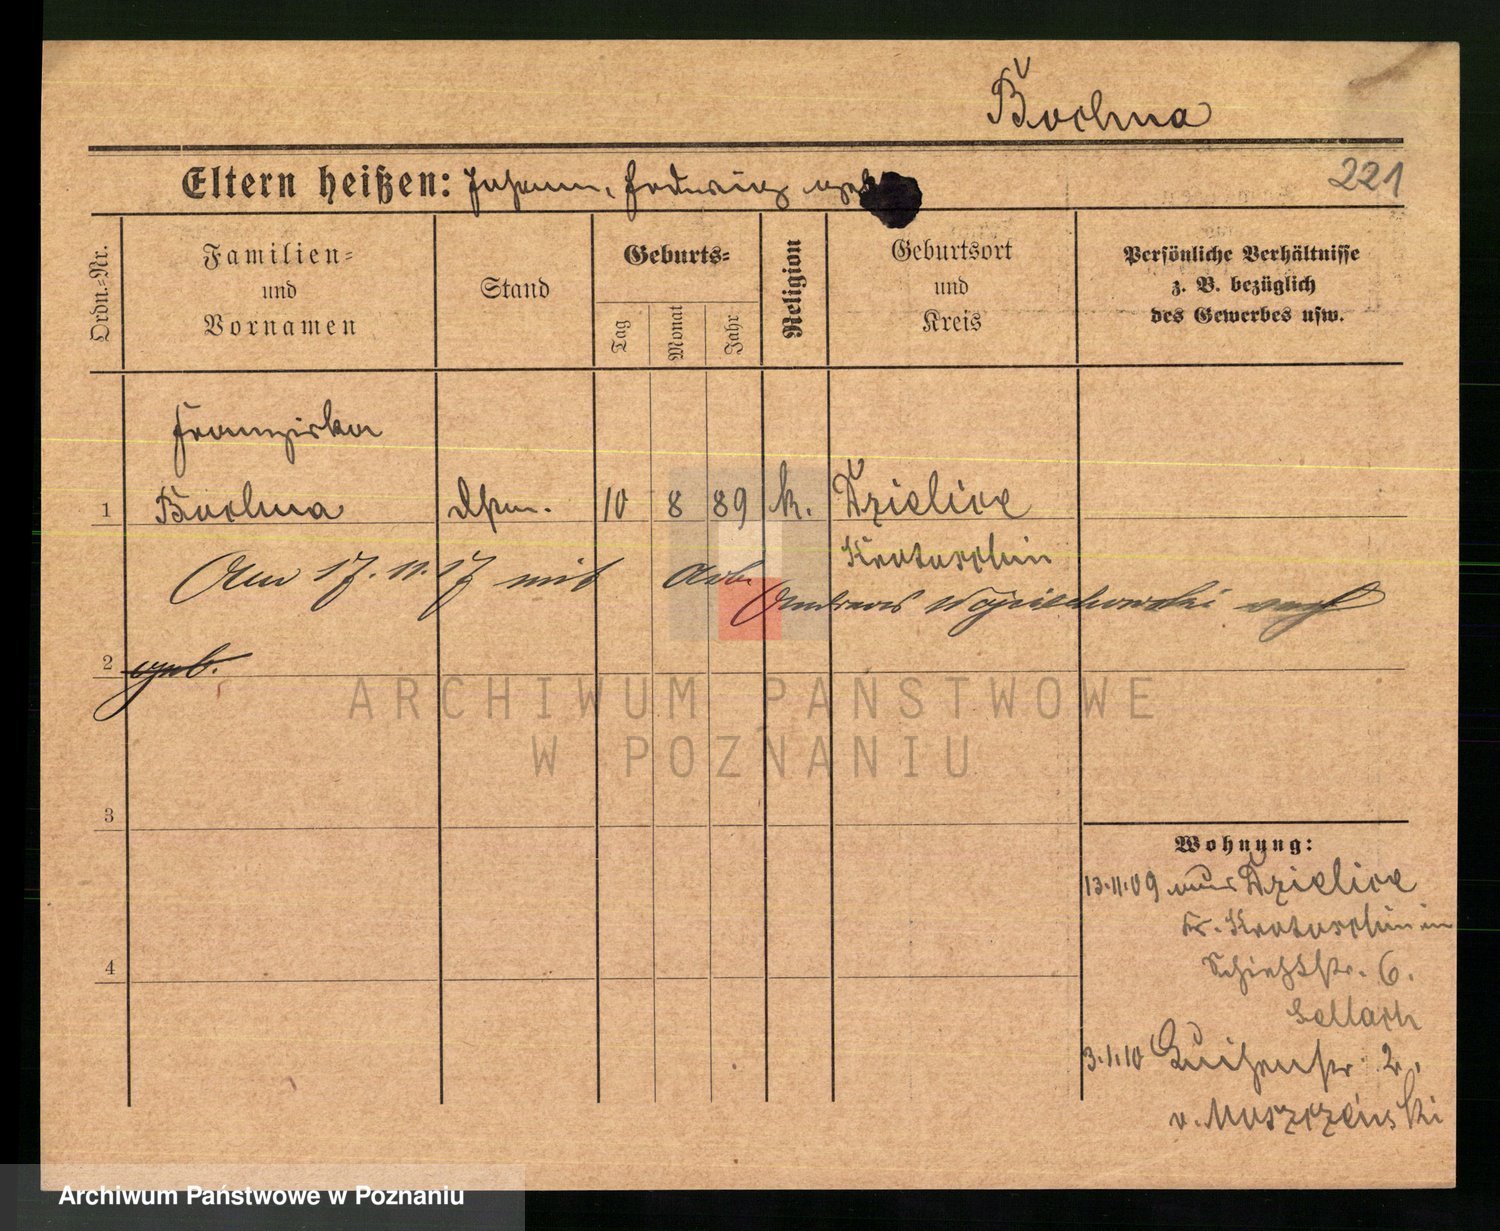 Bochna
221
Eltern heißen: Johann, Hedwig
Ordn.-Nr.
Familien=
und
Vornamen
Stand
Geburts=
Tag
Monat
Jahr
Religion
Geburtsort
und
Kreis
Persönliche Verhältnisse
z. B. bezüglich
des Gewerbes usw.
Franziska
1 Bochna 10 8 89 k. Dzielice
Krotoschin
Am 17. 11. 17 mit Arb. Andreas Wojciechowski
2
3
4
ARCHIWUM PAŃSTWOWE
W POZNANIU
Wohnung:
13.11.09 aus Dzielice
Kr. Krotoschin in
6.
3.1.10 Luisenstr. 2.
v. Moszczeński
Archiwum Państwowe w Poznaniu